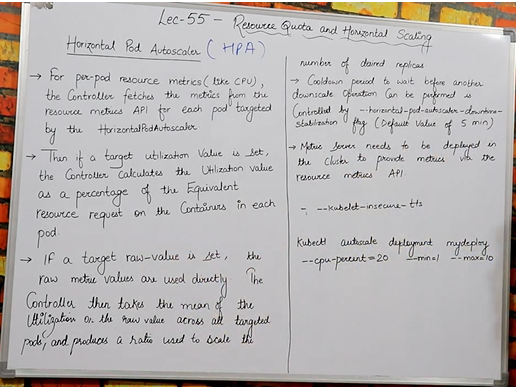 Lec-55 - Resource Quota and Horizontal Scaling
Horizontal Pod Autoscaler (HPA)
→ For per-pod resource metrics (like CPU),
the Controller fetches the metrics from the
resource metrics API for each pod targeted
by the HorizontalPodAutoscaler
→ Then if a target utilization Value is set,
the Controller calculates the Utilization value
as a percentage of the Equivalent
resource request on the Containers in each
pod.
→ If a target raw-value is set, the
raw metric values are used directly. The
Controller then takes the mean of the
Utilization or the raw value across all targeted
pods, and produces a ratio used to scale the
number of desired replicas
→ Cooldown period to wait before another
downscale operation Can be performed is
Controlled by --horizontal-pod-autoscaler-downscale-
stabilization flag (Default Value of 5 min)
→ Metric Server needs to be deployed in
the Cluster to provide metrics via the
resource metrics API.
- --kubelet-insecure-tls
Kubectl autoscale deployment mydeploy
--cpu-percent=20 --min=1 --max=10